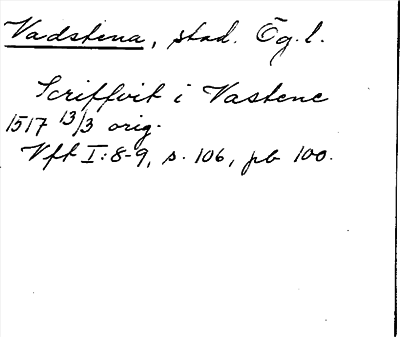 Vadstena, stad. Ög. l.
Scriffvit i Vastene
1517 13/3 orig.
Vft I:8-9, s. 106, pb 100.